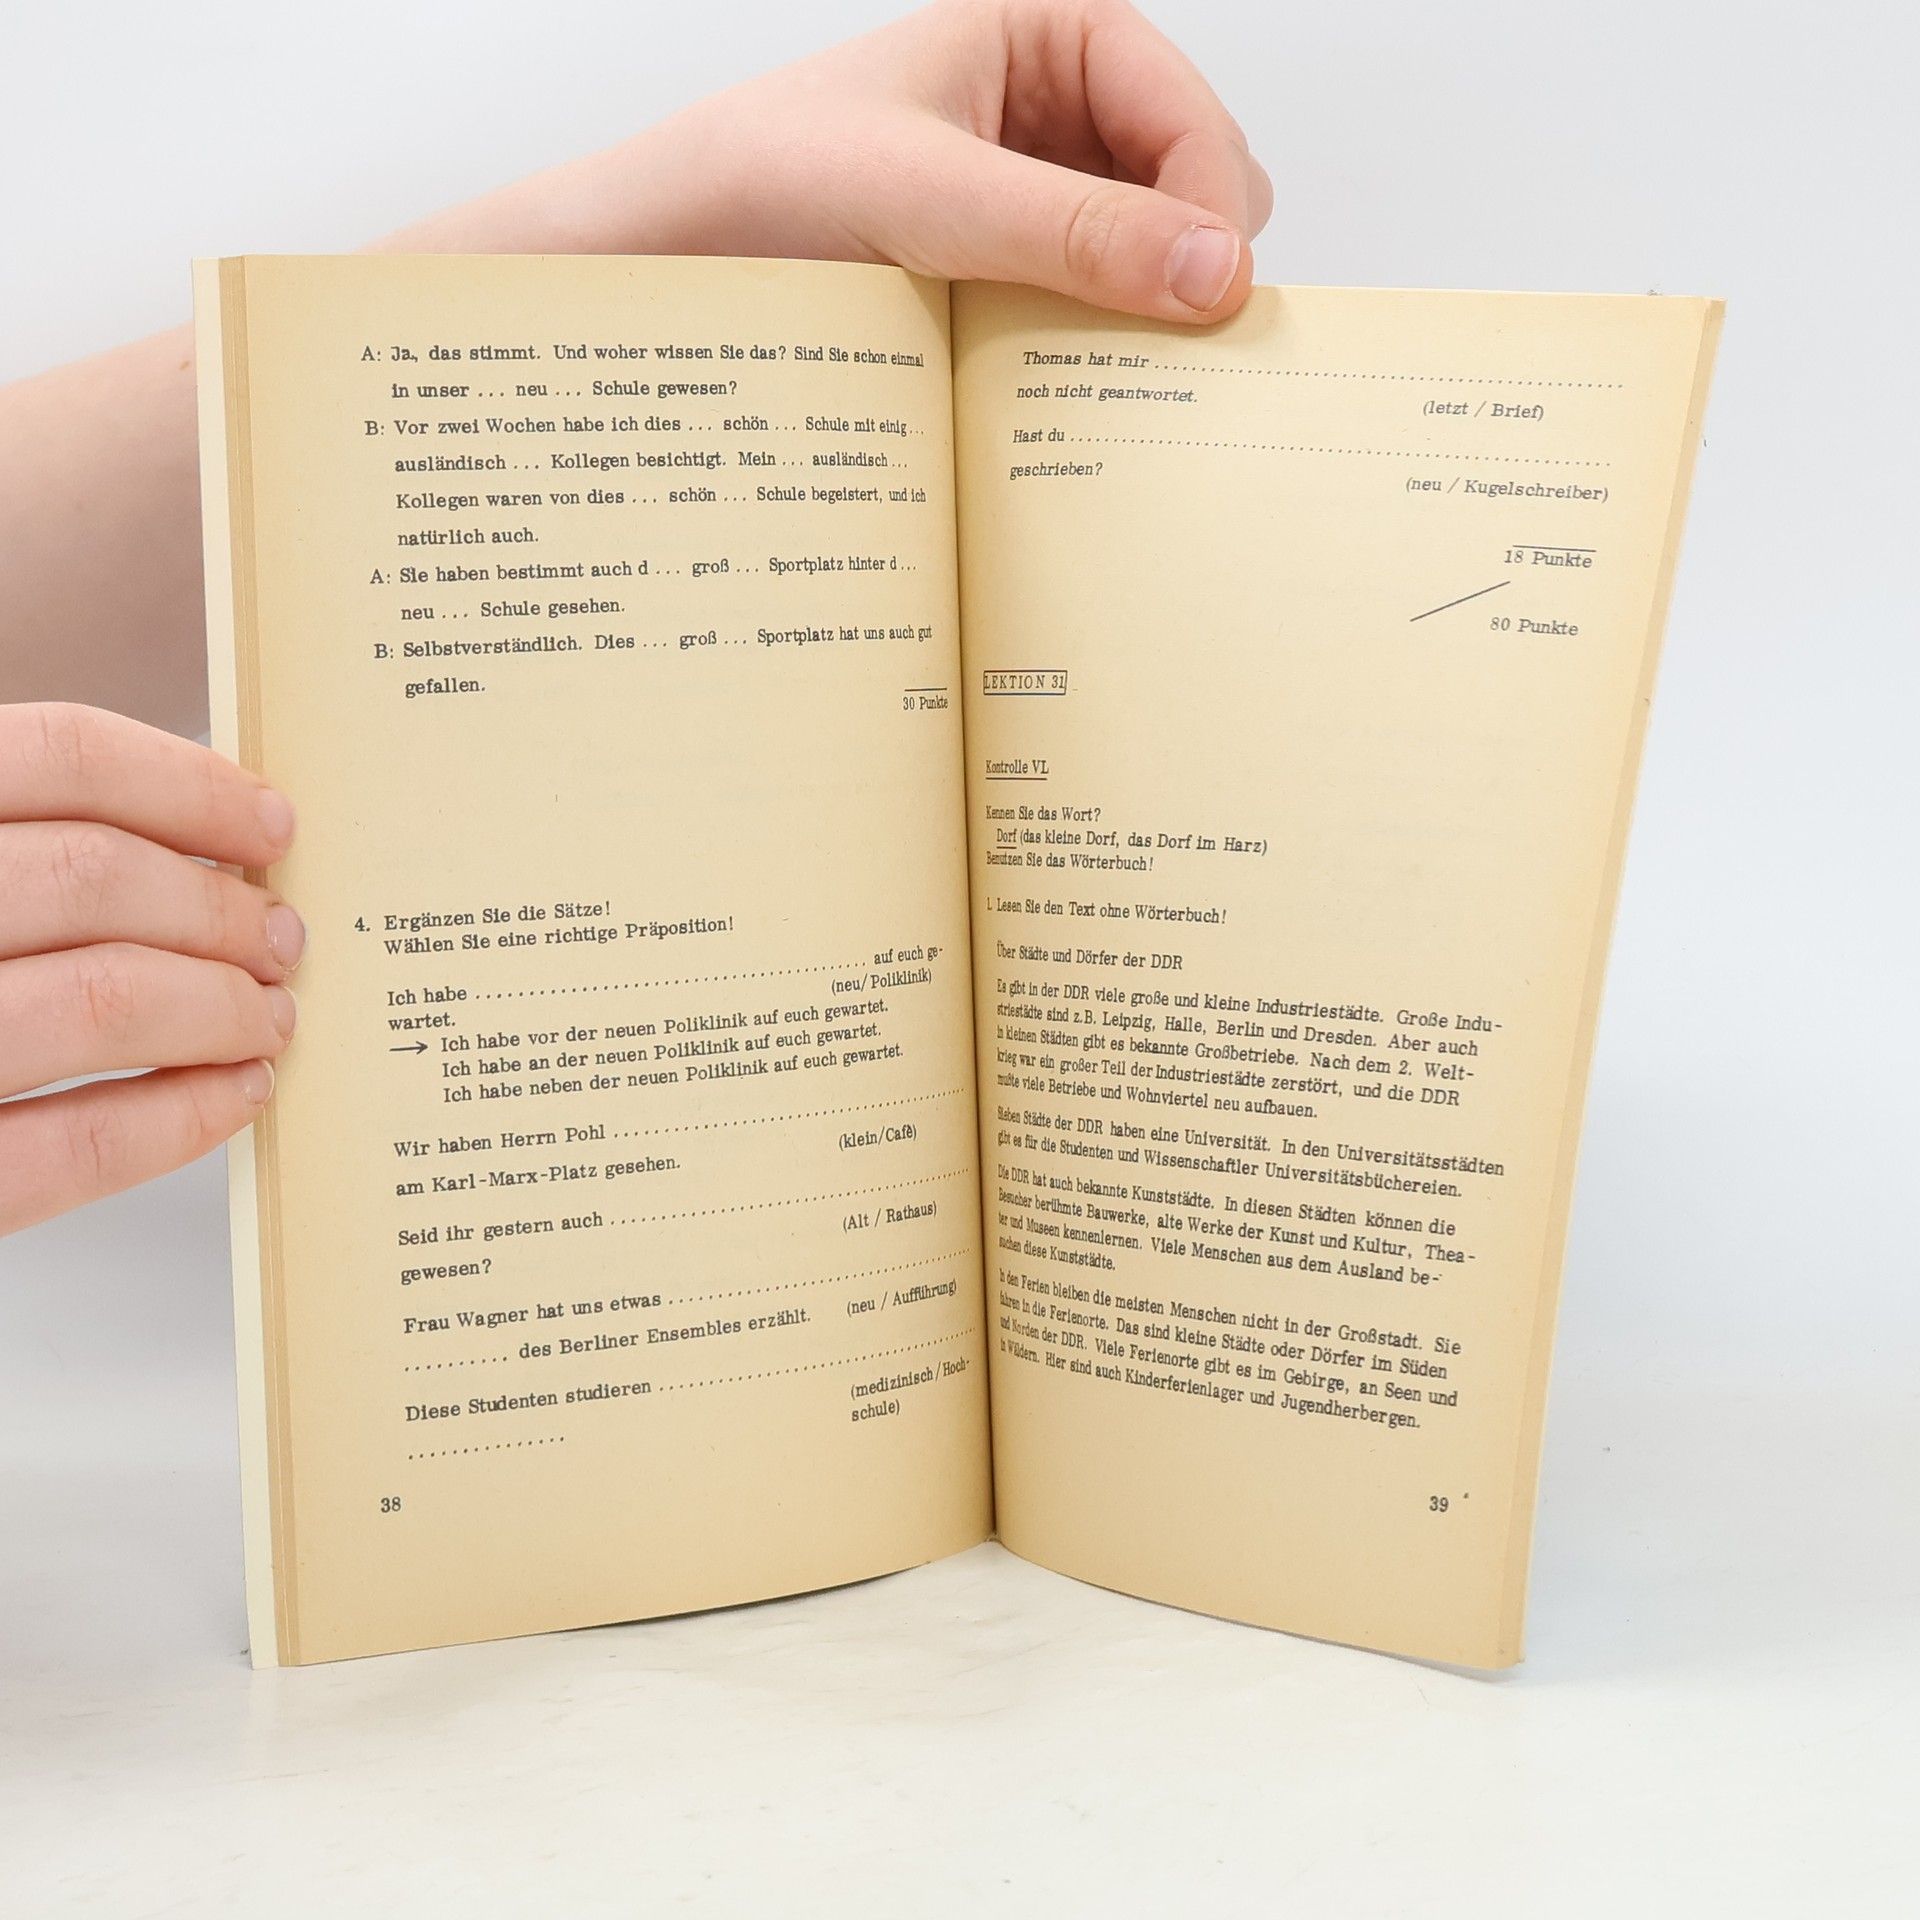 A: Ja, das stimmt. Und woher wissen Sie das? Sind Sie schon einmal
in unser ... neu ... Schule gewesen?
B: Vor zwei Wochen habe ich dies ... schön ... Schule mit einig ...
ausländisch ... Kollegen besichtigt. Mein ... ausländisch ...
Kollegen waren von dies ... schön ... Schule begeistert, und ich
natürlich auch.
A: Sie haben bestimmt auch d ... groß ... Sportplatz hinter d ...
neu ... Schule gesehen.
B: Selbstverständlich. Dies ... groß ... Sportplatz hat uns auch gut
gefallen.
30 Punkte
4. Ergänzen Sie die Sätze!
Wählen Sie eine richtige Präposition!
Ich habe ........................................ auf euch ge-
wartet. (neu/Poliklinik)
→ Ich habe vor der neuen Poliklinik auf euch gewartet.
Ich habe an der neuen Poliklinik auf euch gewartet.
Ich habe neben der neuen Poliklinik auf euch gewartet.
Wir haben Herrn Pohl ........................................
am Karl-Marx-Platz gesehen. (klein/Cafè)
Seid ihr gestern auch ........................................
gewesen? (Alt / Rathaus)
Frau Wagner hat uns etwas ..................................
.......... des Berliner Ensembles erzählt. (neu / Aufführung)
Diese Studenten studieren ...................................
............... (medizinisch/Hoch-
schule)
38
Thomas hat mir ..................................................
noch nicht geantwortet. (letzt / Brief)
Hast du ..........................................................
geschrieben? (neu / Kugelschreiber)
18 Punkte
80 Punkte
LEKTION 31
Kontrolle VI.
Kennen Sie das Wort?
Dorf (das kleine Dorf, das Dorf im Harz)
Benutzen Sie das Wörterbuch!
1. Lesen Sie den Text ohne Wörterbuch!
Über Städte und Dörfer der DDR
Es gibt in der DDR viele große und kleine Industriestädte. Große Indu-
striestädte sind z.B. Leipzig, Halle, Berlin und Dresden. Aber auch
in kleinen Städten gibt es bekannte Großbetriebe. Nach dem 2. Welt-
krieg war ein großer Teil der Industriestädte zerstört, und die DDR
mußte viele Betriebe und Wohnviertel neu aufbauen.
Sieben Städte der DDR haben eine Universität. In den Universitätsstädten
gibt es für die Studenten und Wissenschaftler Universitätsbüchereien.
Die DDR hat auch bekannte Kunststädte. In diesen Städten können die
Besucher berühmte Bauwerke, alte Werke der Kunst und Kultur, Thea-
ter und Museen kennenlernen. Viele Menschen aus dem Ausland be-
suchen diese Kunststädte.
In den Ferien bleiben die meisten Menschen nicht in der Großstadt. Sie
fahren in die Ferienorte. Das sind kleine Städte oder Dörfer im Süden
und Norden der DDR. Viele Ferienorte gibt es im Gebirge, an Seen und
in Wäldern. Hier sind auch Kinderferienlager und Jugendherbergen.
39